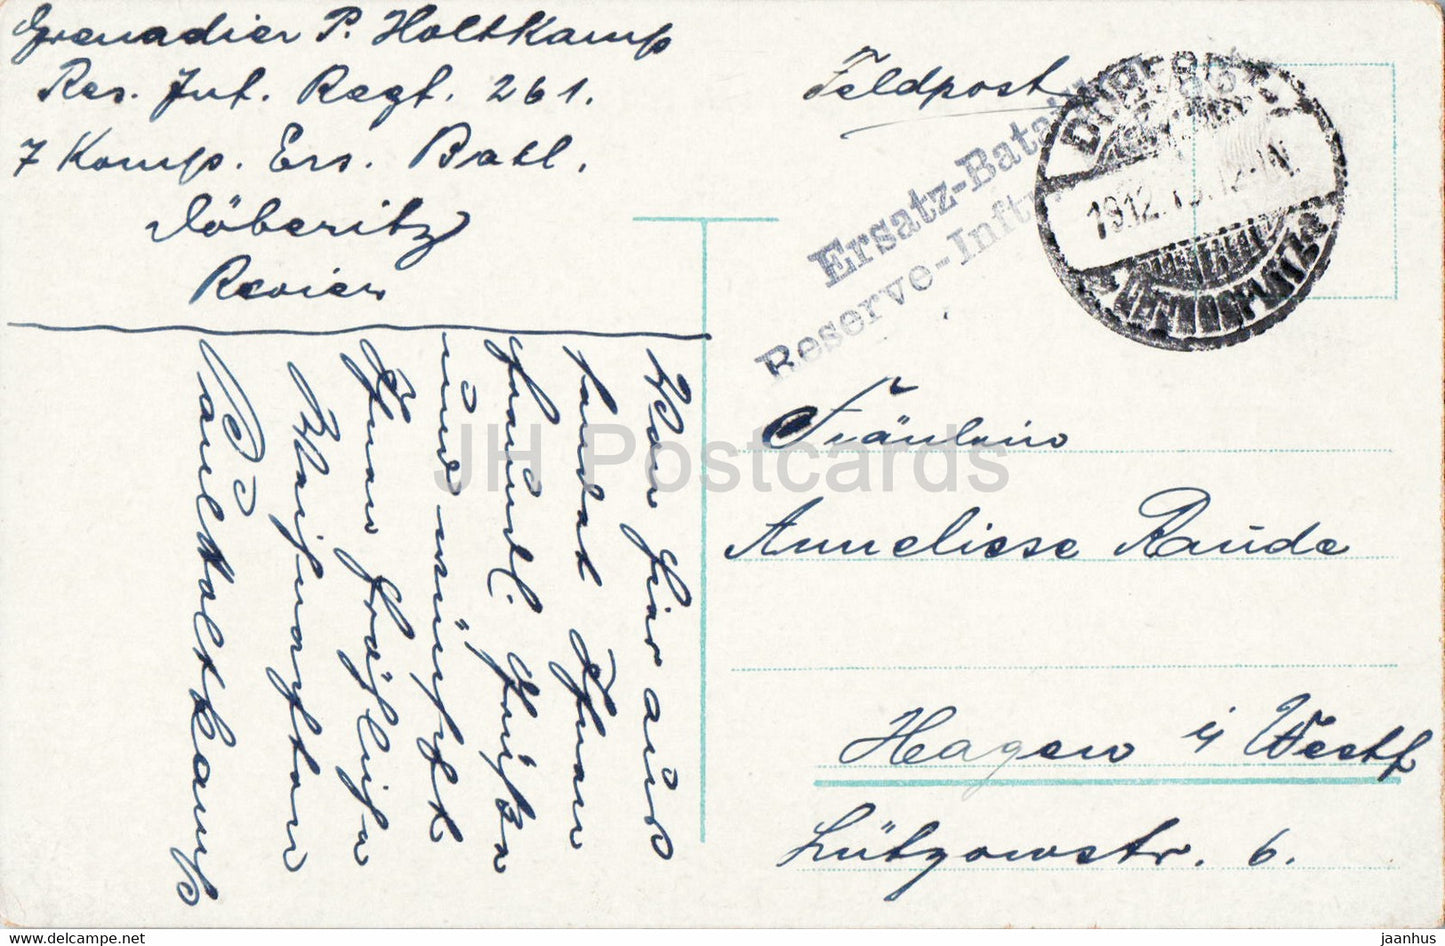 Grenadier P. Holtkamp
Res. Inf. Regt. 261.
7 Komp. Ers. Batl.
Döberitz
Revier
Von hier aus
sendet Ihnen
freundl. Grüße
und wünscht
Ihnen fröhliche
Weihnachten
Paul Holtkamp
Feldpost
Ersatz-Bataill
Reserve-Inftr
DÖBERITZ
19.12. 12-1N.
ÜBUNGSPLATZ
Fräulein
Anneliese Raude
Hagen i/ Westf
Lützowstr. 6.
JH Postcards
www.delcampe.net
jaanhus